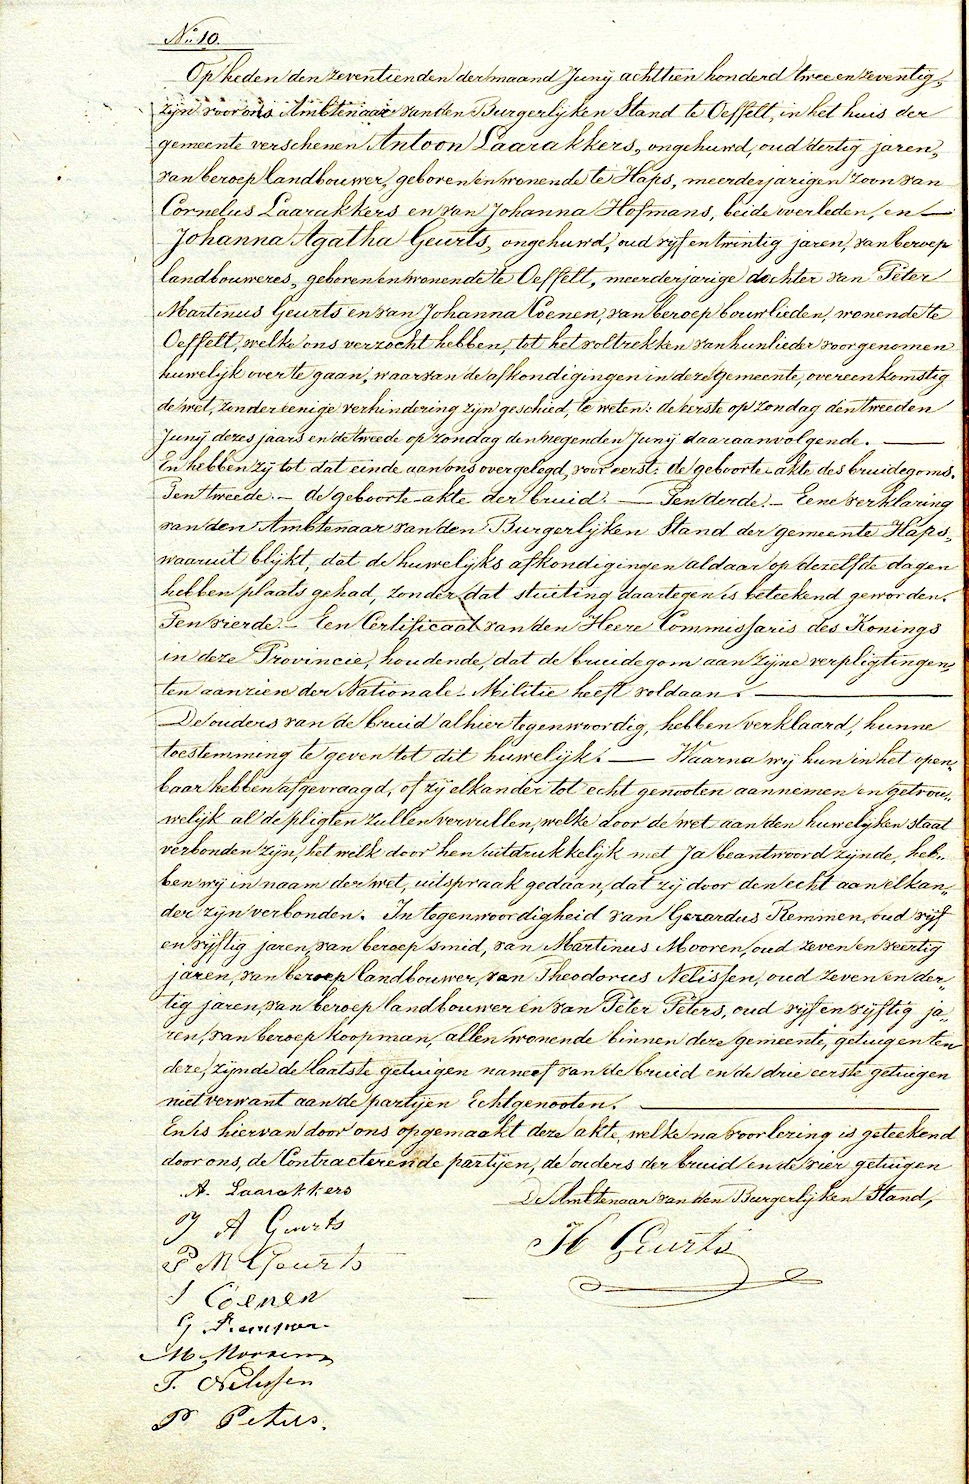 No. 10.
Op heden den zeventienden der maand Junij achttien honderd twee en zeventig,
zijn voor ons Ambtenaar van den Burgerlijken Stand te Oeffelt, in het huis der
gemeente verschenen Antoon Laarakkers, ongehuwd, oud dertig jaren,
van beroep landbouwer, geboren en wonende te Haps, meerderjarigen zoon van
Cornelus Laarakkers en van Johanna Hofmans, beide overleden, en —
Johanna Agatha Geurts, ongehuwd, oud vijf en twintig jaren, van beroep
landbouweres, geboren en wonende te Oeffelt, meerderjarige dochter van Peter
Martinus Geurts en van Johanna Coenen, van beroep bouwlieden, wonende te
Oeffelt, welke ons verzocht hebben, tot het voltrekken van hunlieder voorgenomen
huwelijk over te gaan, waarvan de afkondigingen in deze gemeente, overeenkomstig
de wet, zonder eenige verhindering zijn geschied, te weten: de eerste op zondag den tweeden
Junij dezes jaars en de tweede op zondag den negenden Junij daaraanvolgende. —
En hebben zij tot dat einde aan ons overgelegd, voor eerst: de geboorte-akte des bruidegoms.
Ten tweede. – de geboorte-akte der bruid. — Ten derde. – Eene verklaring
van den Ambtenaar van den Burgerlijken Stand der gemeente Haps,
waaruit blijkt, dat de huwelijks afkondigingen aldaar op dezelfde dagen
hebben plaats gehad, zonder dat stuiting daartegen is beteekend geworden.
Ten vierde. – Een Certificaat van den Heere Commissaris des Konings
in deze Provincie, houdende, dat de bruidegom aan zijne verpligtingen,
ten aanzien der Nationale Militie heeft voldaan. —
De ouders van de bruid alhier tegenwoordig, hebben verklaard, hunne
toestemming te geven tot dit huwelijk. — Waarna wij hun in het open„
baar hebben afgevraagd, of zij elkander tot echt genooten aannemen en getrou„
welijk al de pligten zullen vervullen, welke door de wet aan den huwelijken staat
verbonden zijn, het welk door hen uitdrukkelijk met Ja beantwoord zijnde, heb„
ben wij in naam der wet, uitspraak gedaan, dat zij door den echt aan elkan„
der zijn verbonden. In tegenwoordigheid van Gerardus Remmen, oud vijf
en vijftig jaren, van beroep smid, van Martinus Mooren, oud zeven en veertig
jaren, van beroep landbouwer, van Theodorus Nelissen, oud zeven en der„
tig jaren, van beroep landbouwer en van Peter Peters, oud vijf en vijftig ja„
ren, van beroep koopman, allen wonende binnen deze gemeente, getuigen ten
deze, zijnde de laatste getuigen naneef van de bruid en de drie eerste getuigen
niet verwant aan de partijen Echtgenooten. —
En is hiervan door ons opgemaakt deze akte, welke na voorlezing is geteekend
door ons, de Contracterende partijen, de ouders der bruid en de vier getuigen
A. Laarakkers
De Ambtenaar van den Burgerlijken Stand,
J A Geurts
H Geurts
P M Geurts
J Coenen
G Remmen
M. Mooren
T. Nelissen
P Peters.